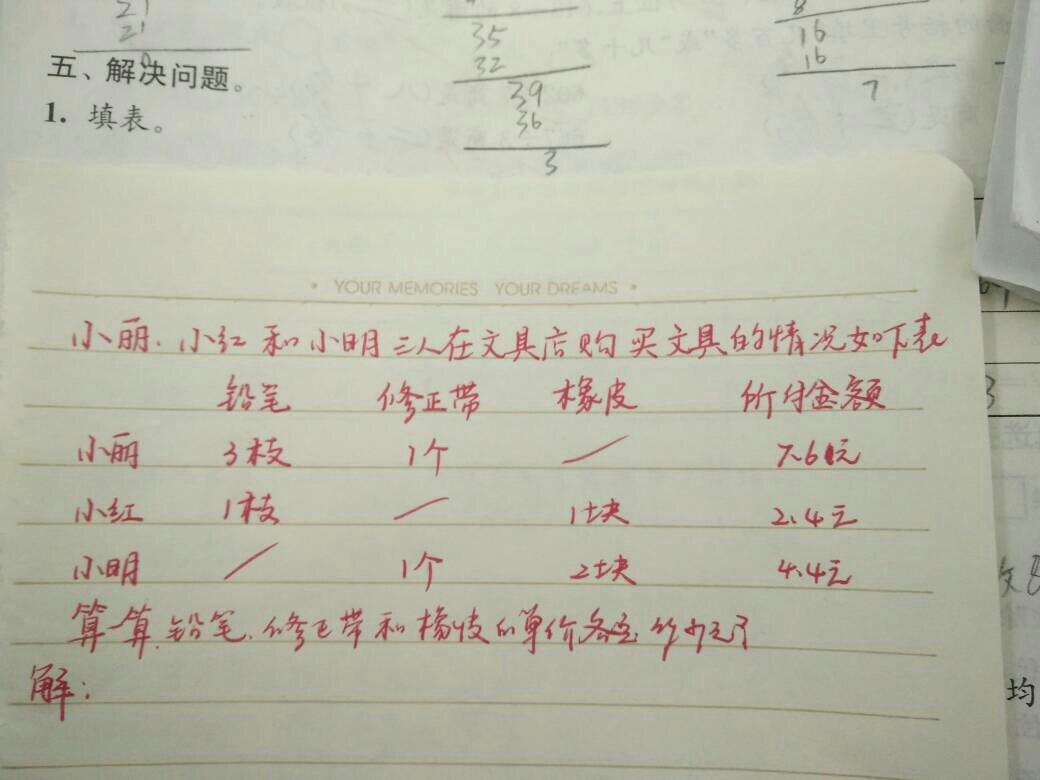 21
21
0
35
32
39
36
3
8
16
16
7
五、解决问题。
1. 填表。
• YOUR MEMORIES YOUR DREAMS •
小丽、小红和小明三人在文具店购买文具的情况如下表
铅笔 修正带 橡皮 所付金额
小丽 3枝 1个 / 7.6元
小红 1枝 / 1块 2.4元
小明 / 1个 2块 4.4元
算一算,铅笔、修正带和橡皮的单价各是多少元?
解:
均